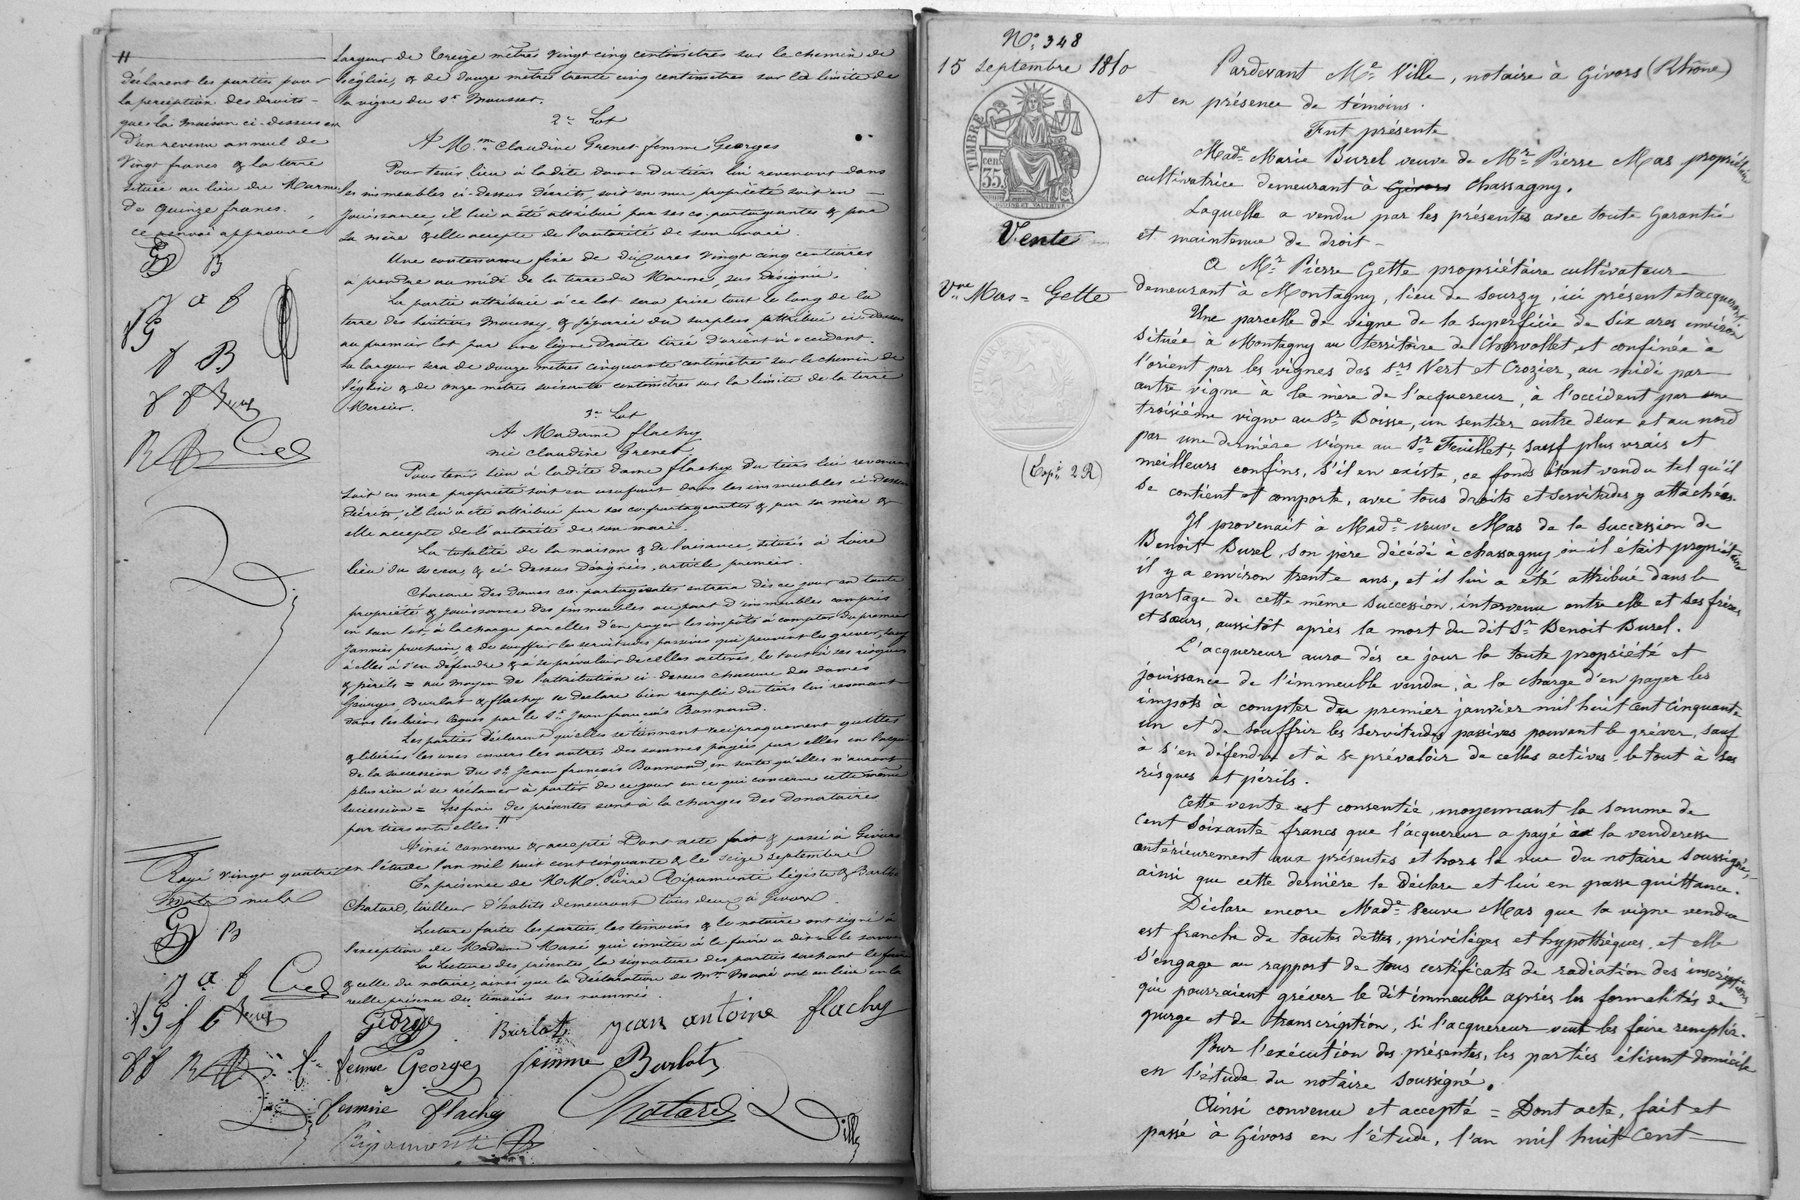 "
déclarent les parties pour
la perception des droits
que la maison ci-dessus
d'un revenu annuel de
vingt francs & la terre
située au lieu de Marme
de quinze francs.
ce renvoi approuvé
G B
y a f
f G
f B
Rayé vingt quatre
mots nuls
G B
y a f
largeur de treize mètres vingt cinq centimètres sur le chemin de
l'église, & de douze mètres trente cinq centimètres sur la limite de
la vigne du sr Mousset.
2e Lot
A M.me Claudine Grenet femme Georges
Pour tenir lieu à la dite dame du tiers lui revenant dans
les immeubles ci-dessus décrits, soit en nue propriété soit en
jouissance, il lui a été attribué par ses co-partageantes & par
sa mère & elle accepte de l'autorité de son mari.
Une contenance fixe de dix ares vingt cinq centiares
à prendre au midi de la terre du Marme, sus désignée.
La partie attribuée à ce lot sera prise tout le long de la
terre des héritiers & séparée du surplus attribué ci-dessus
au premier lot par une ligne droite tirée d'orient à occident.
Sa largeur sera de douze mètres cinquante centimètres sur le chemin de
l'église & de onze mètres soixante centimètres sur la limite de la terre
Mercier.
3e Lot
A Madame flachy
née claudine Grenet
Pour tenir lieu à ladite dame flachy du tiers lui revenant
soit en nue propriété soit en usufruit dans les immeubles ci-dessus
décrits, il lui a été attribué par ses co-partageantes & par sa mère &
elle accepte de l'autorité de son mari.
La totalité de la maison & de l'aisance, situés à Loire
lieu du & ci-dessus désignés, article premier.
Chacune des dames co-partageantes entrera dès ce jour en toute
propriété & jouissance des immeubles ou part d'immeubles compris
en son lot, à la charge par elles d'en payer les impôts à compter du premier
janvier prochain & de souffrir les servitudes passives qui peuvent les grever, sauf
à elles à s'en défendre & à se prévaloir de celles actives, le tout à ses risques
& périls = au moyen de l'attribution ci-dessus chacune des dames
Georges, Burlat & flachy se déclare bien remplie du tiers lui revenant
dans les biens légués par le sr Jean françois Bonnand.
Les parties déclarent qu'elles se tiennent réciproquement quittes
& libérées les unes envers les autres des sommes payées par elles en l'acquit
de la succession du sr Jean françois Bonnand, en sorte qu'elles n'auront
plus rien à se réclamer à partir de ce jour en ce qui concerne cette même
succession = Les frais des présentes sont à la charges des donataires
par tiers entr'elles."
Ainsi convenu & accepté Dont acte fait & passé à Givors
en l'étude l'an mil huit cent cinquante & le seize septembre
En présence de M.M. Pierre Ripamonti légiste &
Chatard, tailleur d'habits demeurant tous deux à Givors.
Lecture faite les parties, les témoins & le notaire ont signé à
l'exception de Madame qui invitée à le faire a dit ne le savoir
La lecture des présentes la signature des parties sachant le faire
& celle du notaire, ainsi que la déclaration de Mme ont eu lieu en la
réelle présence des témoins sus nommés.
George Burlat jean antoine flachy
femme George femme Burlat
femme flachy Chatard Ville
Ripamonti
No. 348
15 septembre 1850
TIMBRE
cen
35.
Vente
Vve Mas = Gette
(Exp. 2 R)
Pardevant Me Ville, notaire à Givors (Rhône)
et en présence de témoins.
Fut présente
Made Marie Burel veuve de Mr Pierre Mas propriétaire
cultivatrice demeurant à Givors Chassagny.
Laquelle a vendu par les présentes avec toute garantie
et maintenue de droit -
A Mr Pierre Gette propriétaire cultivateur
demeurant à Montagny, lieu de Sourzy, ici présent et acquérant
Une parcelle de vigne de la superficie de six ares environ
située à Montagny au territoire de Charvollet, et confinée à
l'orient par les vignes des srs Vert et Crozier, au midi par
autre vigne à la mère de l'acquereur, à l'occident par une
troisième vigne au Sr Boisse, un sentier entre deux et au nord
par une dernière vigne au Sr Feuillet; sauf plus vrais et
meilleurs confins, s'il en existe, ce fonds étant vendu tel qu'il
se contient et comporte, avec tous droits et servitudes y attachés.
Il provenait à Made veuve Mas de la succession de
Benoît Burel, son père décédé à chassagny où il était propriétaire
il y a environ trente ans, et il lui a été attribué dans le
partage de cette même succession, intervenu entre elle et ses frères
et sœurs, aussitôt après la mort du dit Sr Benoit Burel.
L'acquereur aura dès ce jour la toute propriété et
jouissance de l'immeuble vendu, à la charge d'en payer les
impots à compter du premier janvier mil huit cent cinquante
un et de souffrir les servitudes passives pouvant le gréver, sauf
à s'en défendre et à se prévaloir de celles actives, le tout à ses
risques et périls.
Cette vente est consentie, moyennant la somme de
cent soixante francs que l'acquereur a payé à la venderesse
antérieurement aux présentes et hors la vue du notaire soussigné,
ainsi que cette dernière le déclare et lui en passe quittance.
Déclare encore Made Veuve Mas que la vigne vendue
est franche de toutes dettes, privilèges et hypothèques, et elle
s'engage au rapport de tous certificats de radiation des inscriptions
qui pourraient gréver le dit immeuble après les formalités de
purge et de transcription, si l'acquereur veut les faire remplir.
Pour l'exécution des présentes, les parties élisent domicile
en l'étude du notaire soussigné.
Ainsi convenu et accepté = Dont acte, fait et
passé à Givors en l'étude, l'an mil huit cent